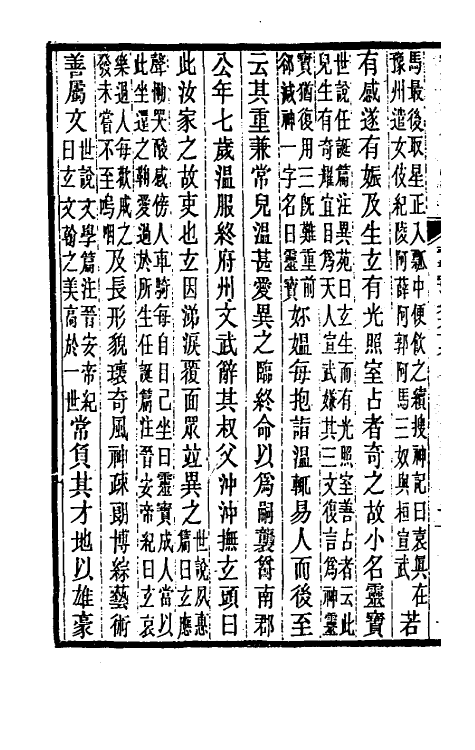 馬最後取星正入瓢中便飲之續搜神記曰袁眞在
豫州遣女伎紀陵阿薛阿郭阿馬三奴與桓宣武
若
有感遂有娠及生玄有光照室占者奇之故小名靈寶
世說任誕篇注異苑曰玄生而有光照室善占者云此
兒生有奇耀宜目爲天人宣武嫌其三文復言爲神靈
寶猶復用三旣難重前
郤減神一字名曰靈寶
妳媼每抱詣溫輒易人而後至
云其重兼常兒溫甚愛異之臨終命以爲嗣襲爵南郡
公年七歲溫服終府州文武辭其叔父沖沖撫玄頭曰
此汝家之故吏也玄因涕淚覆面眾並異之
世說夙惠
篇曰玄應
聲慟哭酸感傍人車騎每自目己坐曰靈寶成人當以
此坐還之鞠愛過於所生任誕篇注晉安帝紀曰玄哀
樂過人每歡戚之
發未嘗不至嗚咽
及長形貌瓌奇風神疎朗博綜藝術
善屬文
世說文學篇注晉安帝紀
曰玄文翰之美高於一世
常負其才地以雄豪